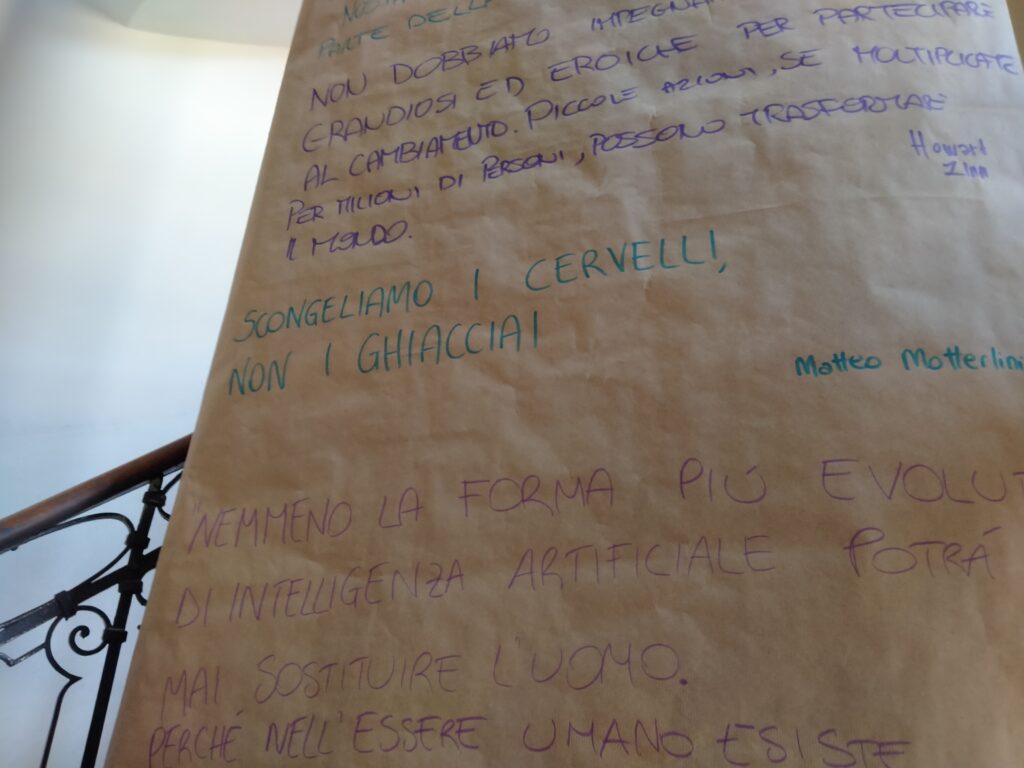 PARTE DELLA
NON DOBBIAMO
GRANDIOSI ED EROICHE PER PARTECIPARE
AL CAMBIAMENTO. PICCOLE AZIONI, SE MOLTIPLICATE
PER MILIONI DI PERSONI, POSSONO TRASFORMARE
IL MONDO.
Howard
Zinn
SCONGELIAMO I CERVELLI,
NON I GHIACCIAI
Matteo Motterlini
"NEMMENO LA FORMA PIÚ EVOLUT
DI INTELLIGENZA ARTIFICIALE POTRÁ
MAI SOSTITUIRE L'UOMO.
PERCHÉ NELL'ESSERE UMANO ESISTE